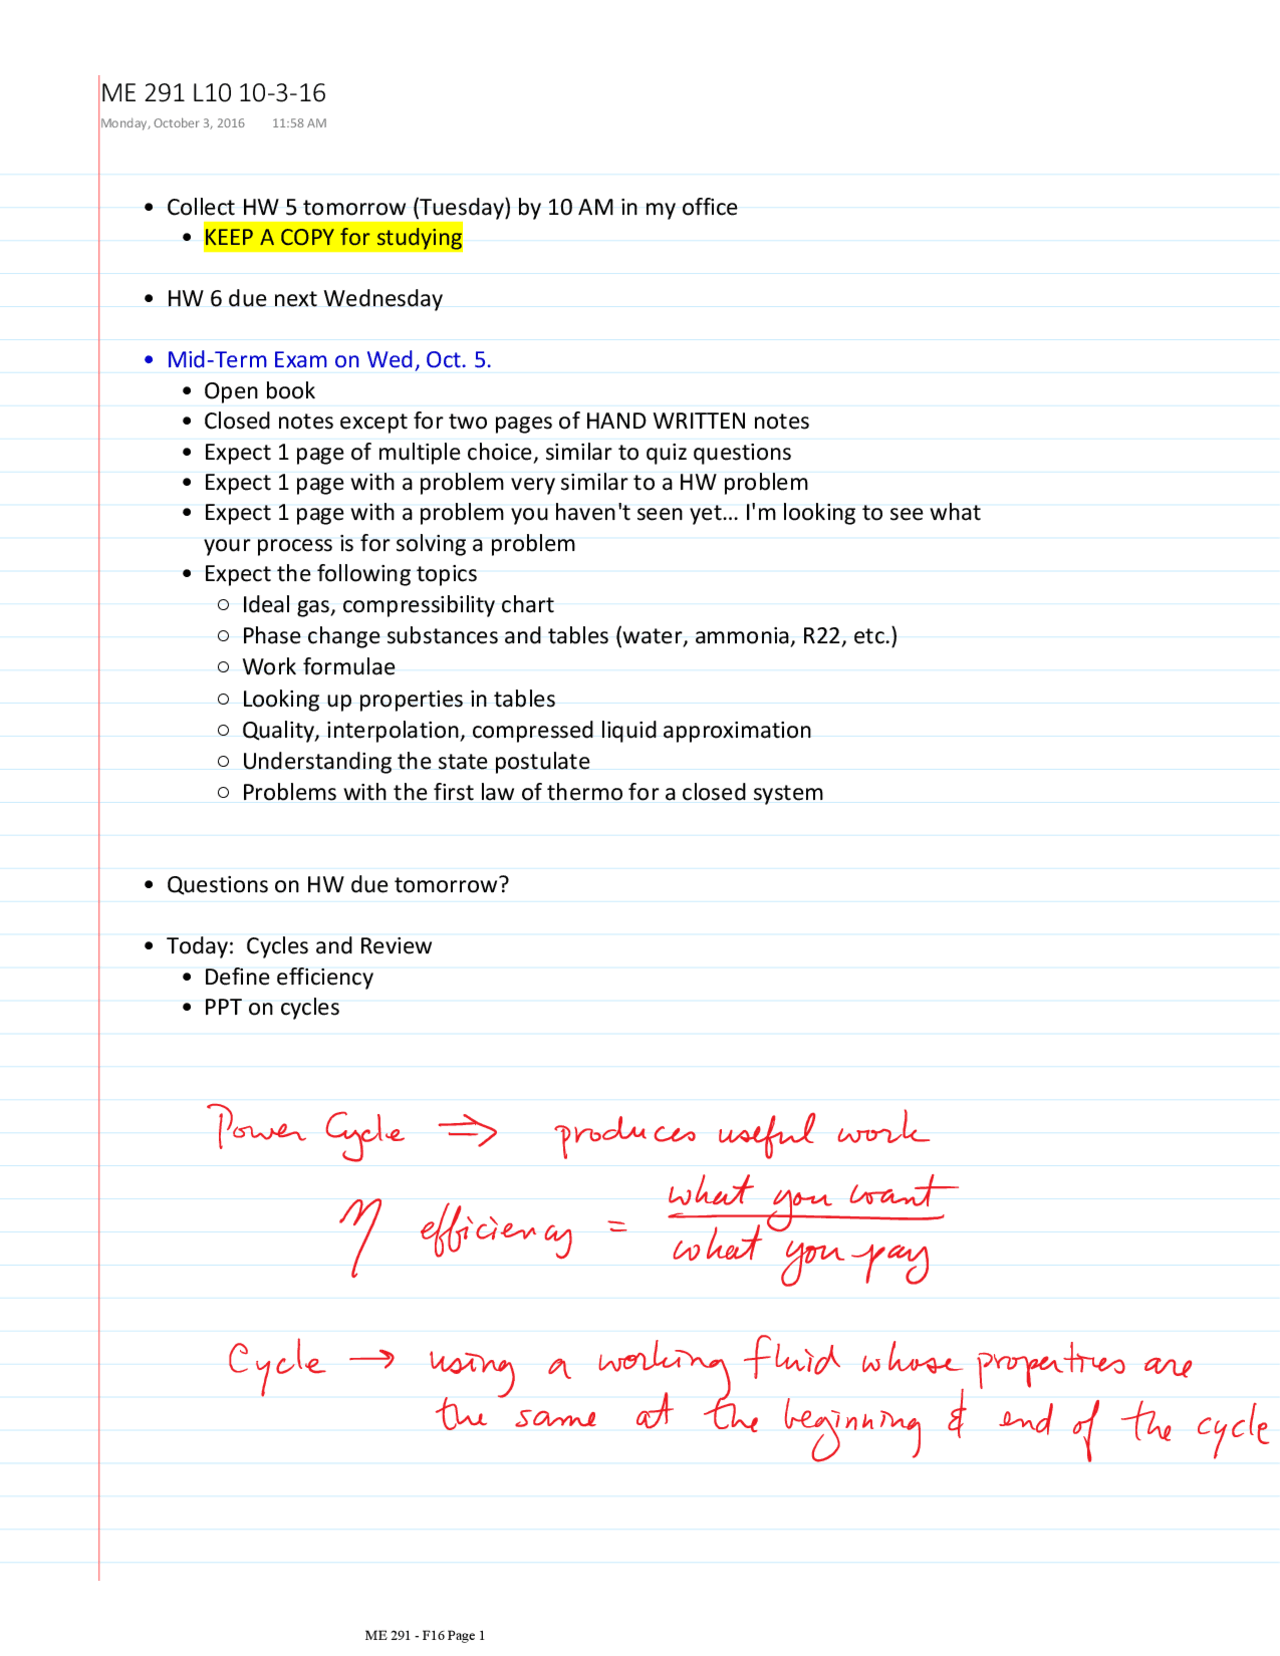 ME 291 L10 10-3-16
Monday, October 3, 2016 11:58 AM
• Collect HW 5 tomorrow (Tuesday) by 10 AM in my office
• KEEP A COPY for studying
• HW 6 due next Wednesday
• Mid-Term Exam on Wed, Oct. 5.
• Open book
• Closed notes except for two pages of HAND WRITTEN notes
• Expect 1 page of multiple choice, similar to quiz questions
• Expect 1 page with a problem very similar to a HW problem
• Expect 1 page with a problem you haven't seen yet... I'm looking to see what
your process is for solving a problem
• Expect the following topics
○ Ideal gas, compressibility chart
○ Phase change substances and tables (water, ammonia, R22, etc.)
○ Work formulae
○ Looking up properties in tables
○ Quality, interpolation, compressed liquid approximation
○ Understanding the state postulate
○ Problems with the first law of thermo for a closed system
• Questions on HW due tomorrow?
• Today: Cycles and Review
• Define efficiency
• PPT on cycles
Power Cycle ⇒ produces useful work
what you want
η efficiency =
what you pay
Cycle → using a working fluid whose properties are
the same at the beginning & end of the cycle
ME 291 - F16 Page 1